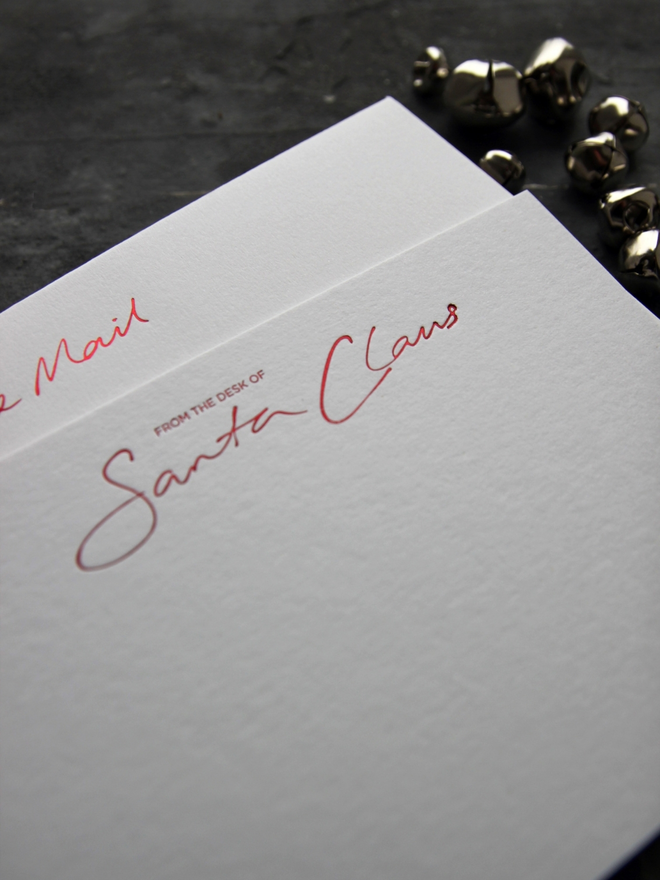 Mail
FROM THE DESK OF
Santa Claus